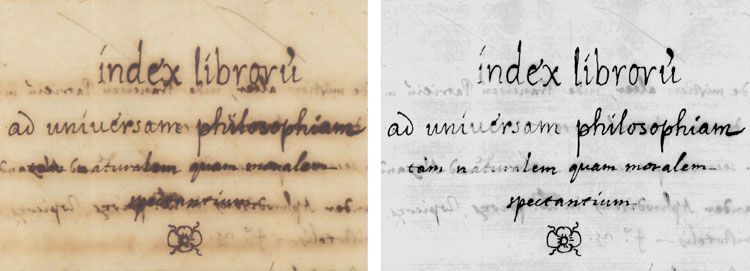 index librorũ
ad universam philosophiam
tam naturalem quam moralem
spectantium
index librorũ
ad universam philosophiam
tam naturalem quam moralem
spectantium